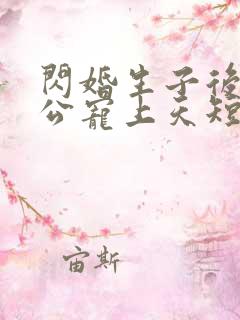 閃婚生子後
公寵上天短
宙斯